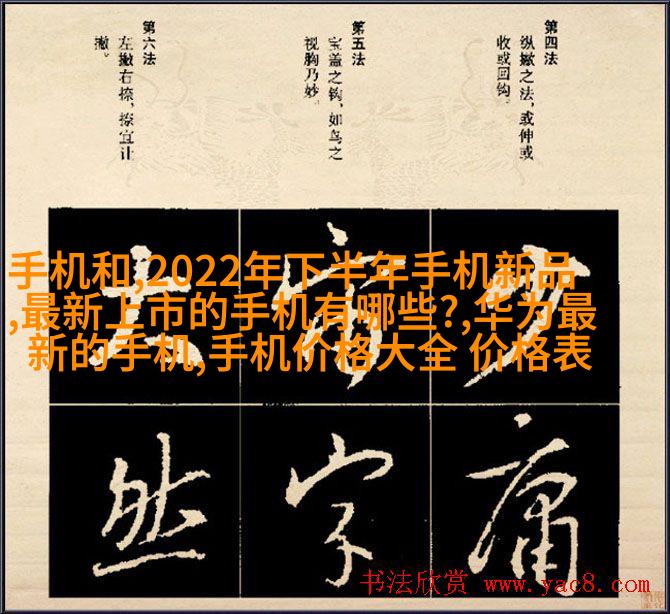 第四法
纵撇之法，或伸或
收或回钩。
第五法
宝盖之钩，如鸟之
视胸乃妙。
第六法
左撇右捺，捺宜让
撇。
手机和,2022年下半年手机新品
,最新上市的手机有哪些?,华为最
新的手机,手机价格大全 价格表
庸
字
然
书法欣赏 www.yac8.com